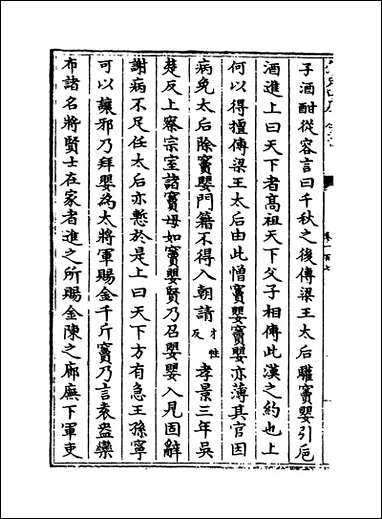 子酒酣從容言曰千秋之後傳梁王太后驩竇嬰引卮
酒進上曰天下者髙祖天下父子相傳此漢之約也上
何以得擅傳梁王太后由此憎竇嬰竇嬰亦薄其官因
病免太后除竇嬰門籍不得入朝請才性反孝景三年吳
楚反上察宗室諸竇毋如竇嬰賢乃召嬰嬰入見固辭
謝病不足任太后亦慙於是上曰天下方有急王孫寧
可以讓邪乃拜嬰為大將軍賜金千斤竇乃言袁盎欒
布諸名將賢士在家者進之所賜金陳之廊廡下軍吏